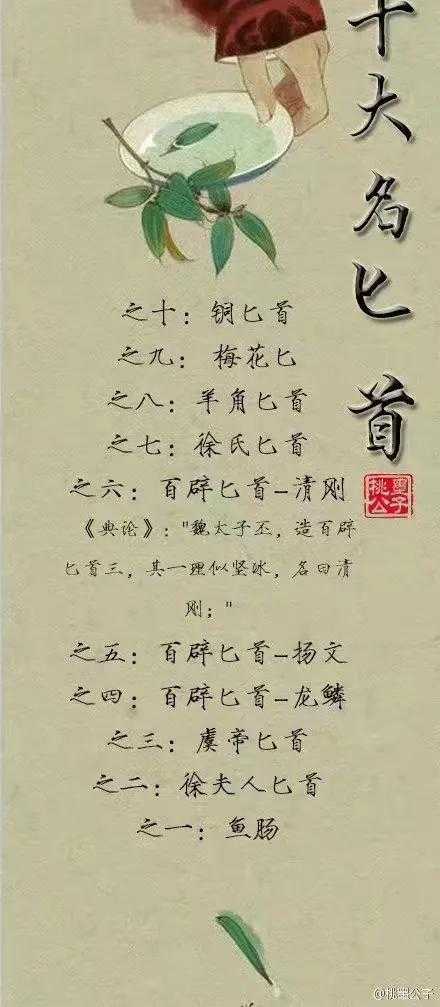 十大名匕首
之十：铜匕首
之九：梅花匕
之八：羊角匕首
之七：徐氏匕首
之六：百辟匕首-清刚
《典论》："魏太子丕，造百辟
匕首三，其一理似坚冰，名曰清
刚；"
之五：百辟匕首-扬文
之四：百辟匕首-龙鳞
之三：虞帝匕首
之二：徐夫人匕首
之一：鱼肠